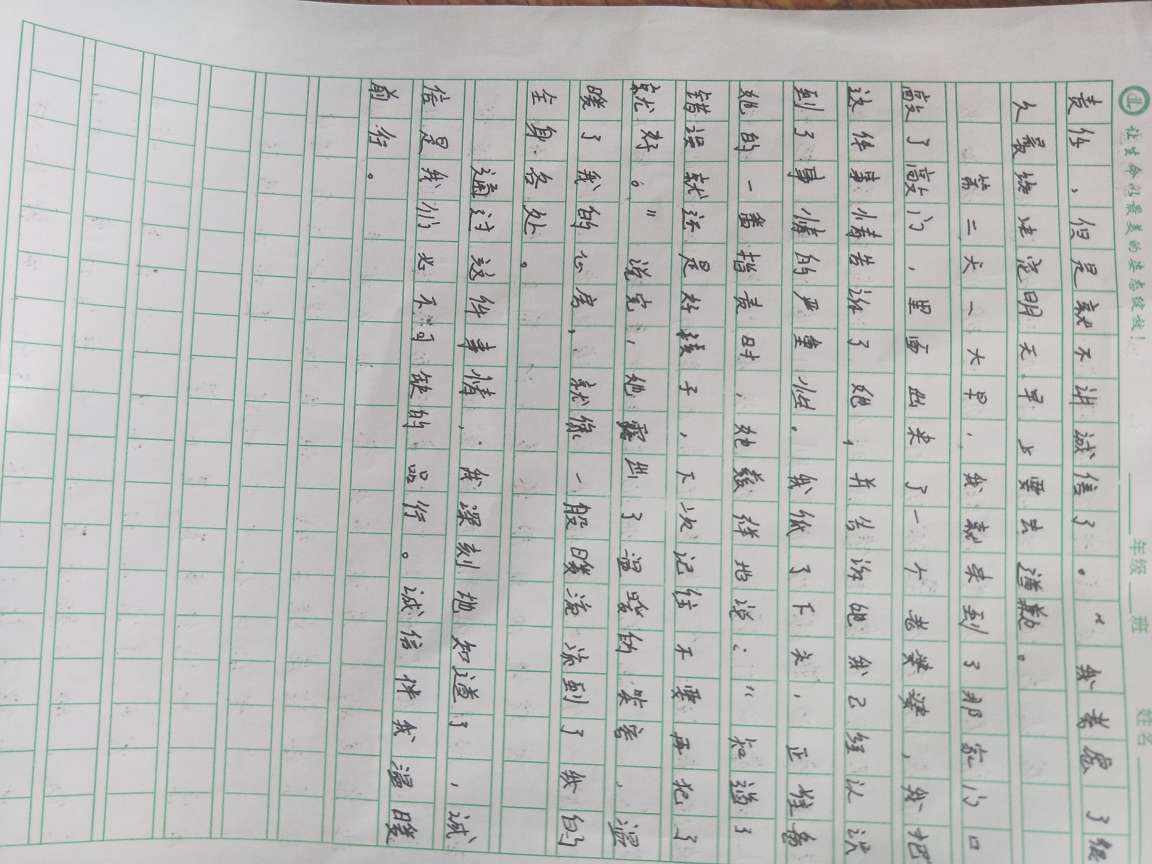 让生命以最美的姿态绽放!
年级 班 姓名
责任,但是就不讲诚信了。"我考虑了很
久最终决定明天早上要去道歉。
第二天一大早,我就来到了那家门口
敲了敲门,里面出来了一个老婆婆,我把
这件事情告诉了她,并告诉她我已经认识
到了事情的严重性。我低了下头,正准备
她的一番指责时,她慈祥地说:"知道了
错误就还是好孩子,下次记住不要再犯了
就好。"说完,她露出了温暖的笑容,温
暖了我的心房,就像一股暖流流到了我的
全身各处。
通过这件事情,我深刻地知道了,诚
信是我们必不可缺的品行。诚信伴我温暖
前行。